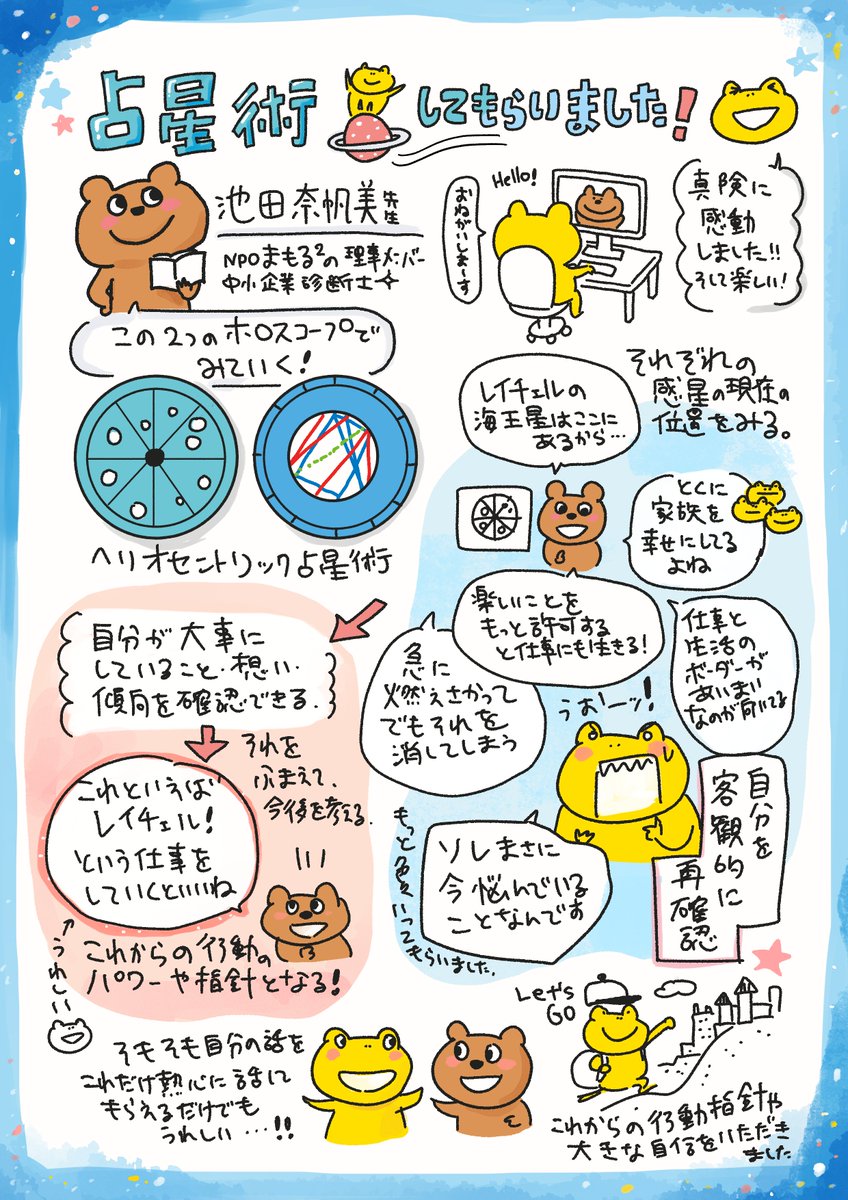 占星術してもらいました!
池田奈帆美先生
NPOまもる²の理事メンバー
中小企業診断士
Hello!
おねがいしまーす
真険に
感動
しました!!
そして楽しい!
この2つのホロスコープで
みていく!
ヘリオセントリック占星術
それぞれの
惑星の現在の
位置をみる。
レイチェルの
海王星はここに
あるから…
とくに
家族を
幸せにしてる
よね
楽しいことを
もっと許可する
と仕事にも生きる!
仕事と
生活の
ボーダーが
あいまい
なのが向いてる
急に
燃えさかって
でもそれを
消してしまう
うおーッ!
ソレまさに
今悩んでいる
ことなんです
もっと色々いってもらいました。
自分を
客観的に
再確認
自分が大事に
していること・想い・
傾向を確認できる.
それを
ふまえて、
今後を考える.
これといえば
レイチェル!
という仕事を
していくといいね
うれしい
これからの行動の
パワーや指針となる!
そもそも自分の話を
これだけ熱心に話して
もらえるだけでも
うれしい…!!
Let's
GO
これからの行動指針や
大きな自信をいただき
ました